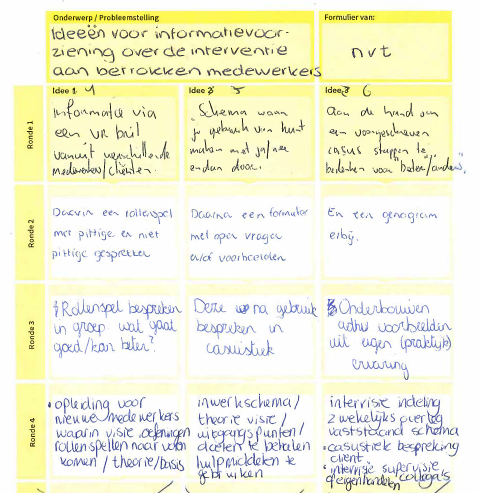 Onderwerp / Probleemstelling
Ideeën voor informatievoor-
ziening over de interventie
aan betrokken medewerkers
Formulier van:
nvt
Ronde 1
Idee 4
Informatie via
een VR bril
vanuit verschillende
medewerkers/cliënten.
Idee 5
Schema waar
je gebruik van kunt
maken met ja/nee
en dan door.
Idee 6
Aan de hand van
een voorgeschreven
casus stappen te
bedenken voor "beter/anders"
Ronde 2
Daarin een rollenspel
met pittige en niet
pittige gesprekken
Daarna een formulier
met open vragen
en/of voorbeelden
En een genogram
erbij.
Ronde 3
Rollenspel bespreken
in groep wat gaat
goed/kan beter?
Deze na gebruik
bespreken in
casuistiek
Onderbouwen
adhv voorbeelden
uit eigen (praktijk)
ervaring
Ronde 4
• opleiding voor
nieuwe medewerkers
waarin visie, oefeningen
rollenspellen naar voor
komen / theorie/basis
inwerkschema/
theorie visie/
uitgangspunten/
doelen te behalen
hulpmiddelen te
gebruiken
intervisie indeling
2 wekelijks overleg
vaststaand schema
• casustiek bespreking
client.
• intervisie supervisie
collega's